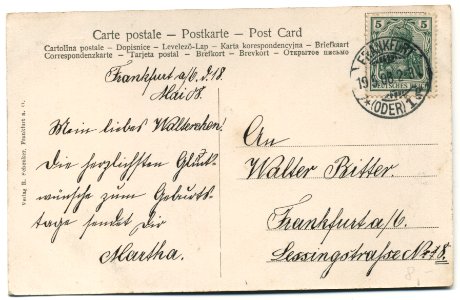 Carte postale – Postkarte – Post Card
Cartolina postale – Dopisnice – Levelező-Lap – Karta korespondencyjna – Briefkaart
Correspondenzkarte – Tarjeta postal – Brefkort – Brevkort – Открытое письмо
Frankfurt a/O. d. 18.
Mai 08.
Mein liebes Walterchen!
Die herzlichsten Glück-
wünsche zum Geburts-
tage sendet Dir
Martha.
An
Walter Ritter.
Frankfurt a/O.
Lessingstraße No 18.
5 5
DEUTSCHES REICH
FRANKFURT
(ODER) 1
Frankfurt a. O.
8.-